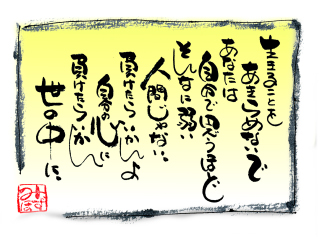 生きることを
あきらめないで
あなたは
自分で思うほど
そんなに弱い
人間じゃない
負けたらいかんよ
自分の心に
負けたらいかん
世の中に